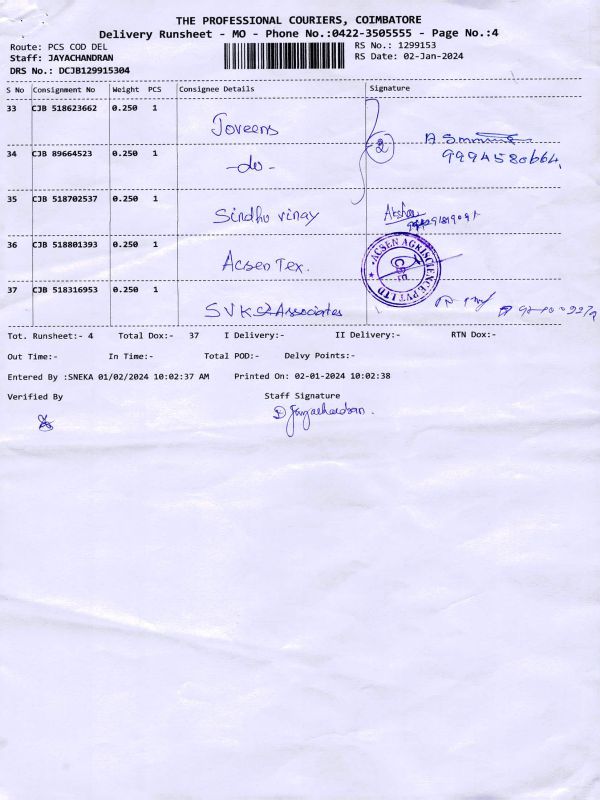 THE PROFESSIONAL COURIERS, COIMBATORE
Delivery Runsheet - MO - Phone No.:0422-3505555 - Page No.:4
Route: PCS COD DEL RS No.: 1299153
Staff: JAYACHANDRAN RS Date: 02-Jan-2024
DRS No.: DCJB129915304
S No Consignment No Weight PCS Consignee Details Signature
33 CJB 518623662 0.250 1 Joveens
34 CJB 89664523 0.250 1 -do- 2 9994580664
35 CJB 518702537 0.250 1 Sindhu vinay
36 CJB 518801393 0.250 1 Acsen Tex. ACSEN AGRISCIENCE PVT LTD
37 CJB 518316953 0.250 1 SVKS Associates
Tot. Runsheet:- 4 Total Dox:- 37 I Delivery:- II Delivery:- RTN Dox:-
Out Time:- In Time:- Total POD:- Delvy Points:-
Entered By :SNEKA 01/02/2024 10:02:37 AM Printed On: 02-01-2024 10:02:38
Verified By Staff Signature